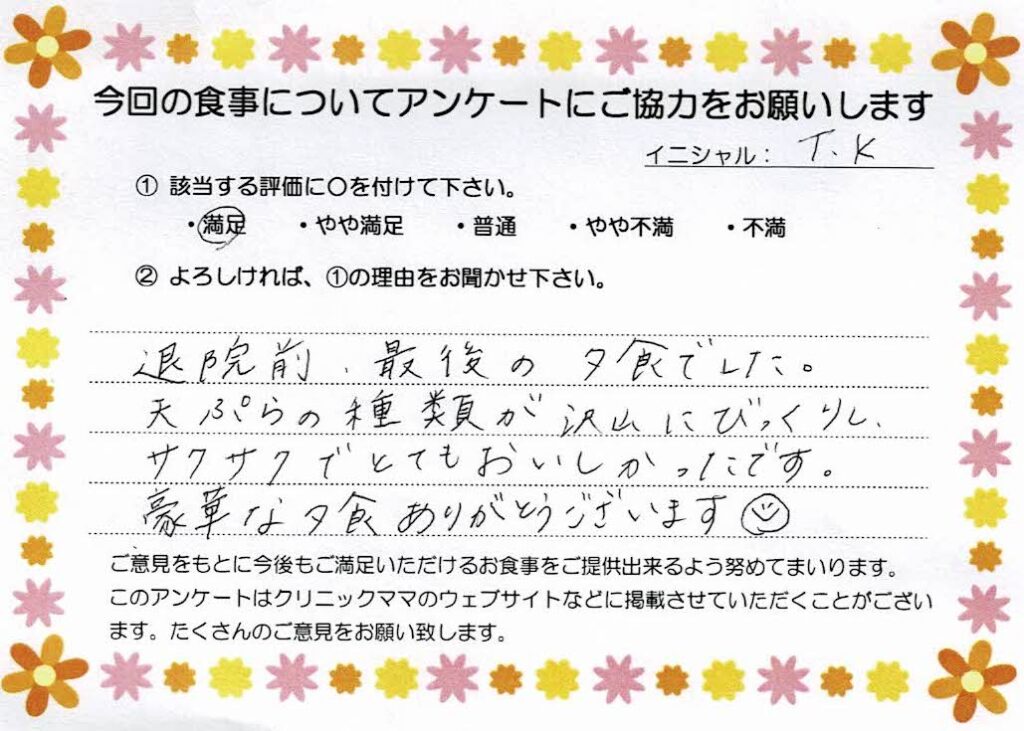 今回の食事についてアンケートにご協力をお願いします
イニシャル： T.K
① 該当する評価に〇を付けて下さい。
・満足 ・やや満足 ・普通 ・やや不満 ・不満
② よろしければ、①の理由をお聞かせ下さい。
退院前、最後の夕食でした。
天ぷらの種類が沢山にびっくりし、
サクサクでとてもおいしかったです。
豪華な夕食ありがとうございます☺
ご意見をもとに今後もご満足いただけるお食事をご提供出来るよう努めてまいります。
このアンケートはクリニックママのウェブサイトなどに掲載させていただくことがござい
ます。たくさんのご意見をお願い致します。